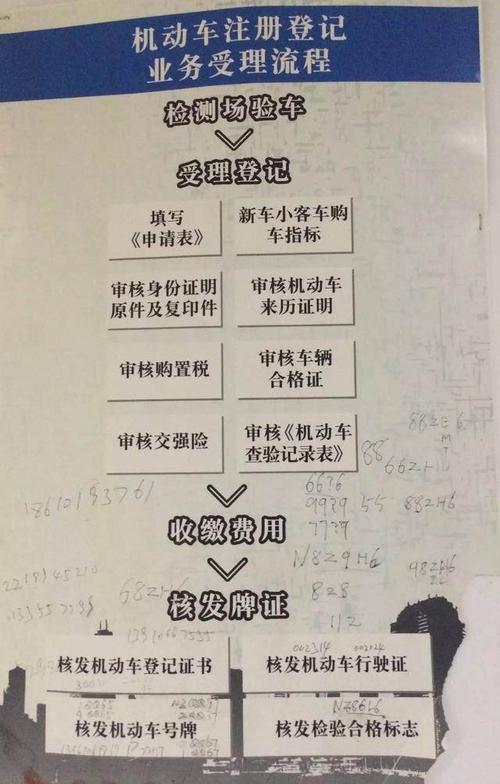 机动车注册登记
业务受理流程
检测场验车
受理登记
填写
《申请表》
新车小客车购
车指标
审核身份证明
原件及复印件
审核机动车
来历证明
审核购置税
审核车辆
合格证
审核交强险
审核《机动车
查验记录表》
88
662H
882H6
18610193761
6676
9979
55
7779
收缴费用
N8Z9H6
828
682H6
112
核发牌证
13910667535
002314
核发机动车登记证书
核发机动车行驶证
NZ86L6
核发机动车号牌
核发检验合格标志